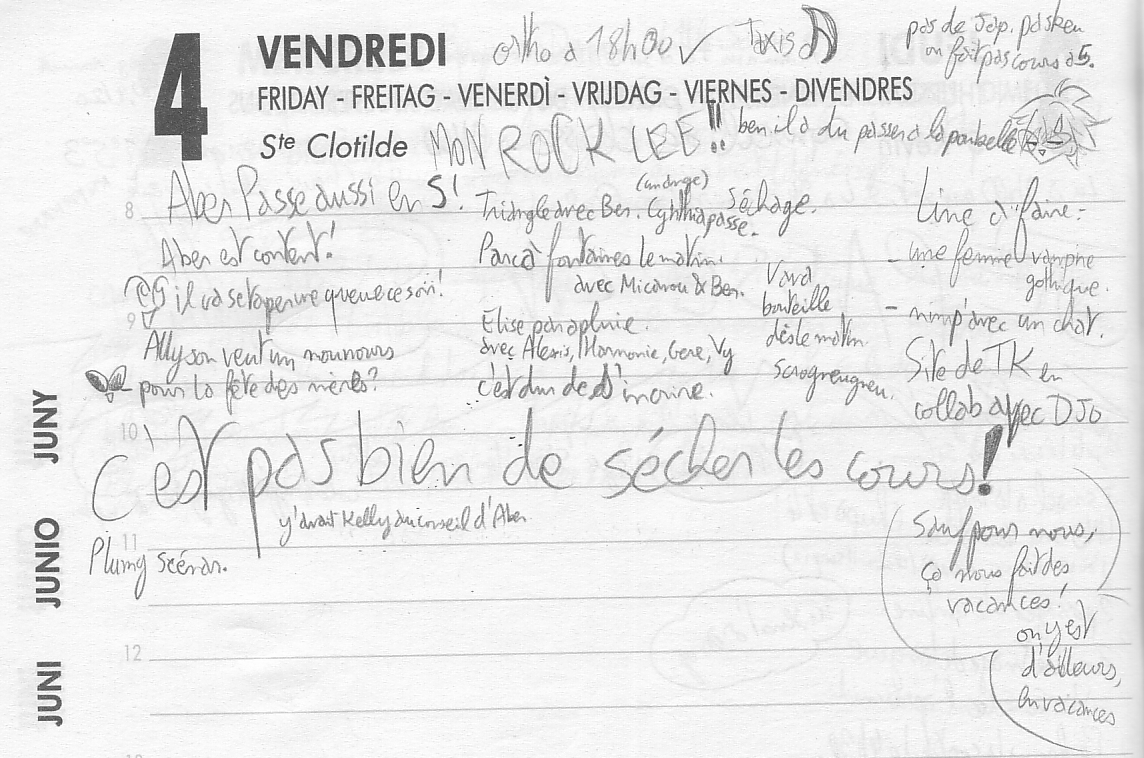 4
VENDREDI
ortho à 18h00 ✓ Taxis
pas de Jap. pasken
on fait pas cours à 5.
FRIDAY - FREITAG - VENERDÌ - VRIJDAG - VIERNES - DIVENDRES
Ste Clotilde
MON ROCK LEE!!
ben il a du passer à la poubelle
8
Aber Passe aussi en S!
Aber est content!
il va se taper une queue ce soir!
9
Allyson veut un nounours
pour la fête des mères?
Triangle avec Ben. Cynthia passe.
séchage.
Parc à fontaines le matin.
avec Micanou & Ben.
Elise parapluie.
avec Alexis, Harmonie, Gere, Vy
c'est dur de s'inscrire.
bouteille
dès le matin.
Scrogneugneu.
Line à faire:
- une femme vampire
gothique.
- nimp' avec un chat.
Site de TK en
collab avec DJo
10
C'est pas bien de sécher les cours!
y'avait Kelly au conseil d'Aber
11
Plumy scénar.
12
Sauf pour nous,
ça nous fait des
vacances!
on y est
d'ailleurs,
en vacances
JUNI JUNIO JUNY